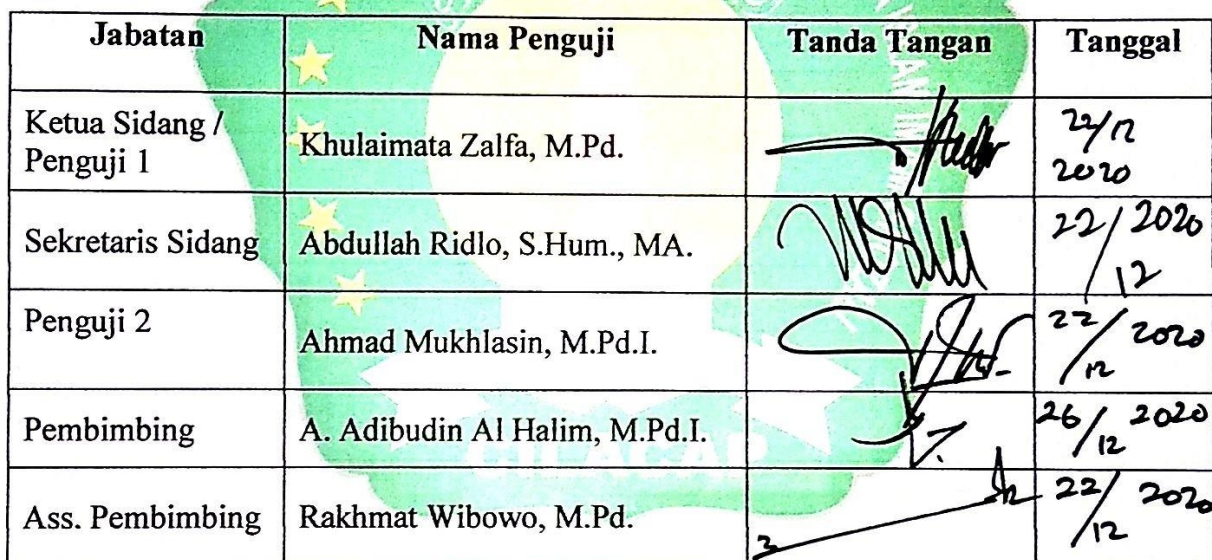 Jabatan Nama Penguji Tanda Tangan Tanggal
Ketua Sidang /
Penguji 1 Khulaimata Zalfa, M.Pd. 22/12
2020
Sekretaris Sidang Abdullah Ridlo, S.Hum., MA. 22/12 2020
Penguji 2 Ahmad Mukhlasin, M.Pd.I. 22/12 2020
Pembimbing A. Adibudin Al Halim, M.Pd.I. 26/12 2020
CILACAP
Ass. Pembimbing Rakhmat Wibowo, M.Pd. 22/12 2020